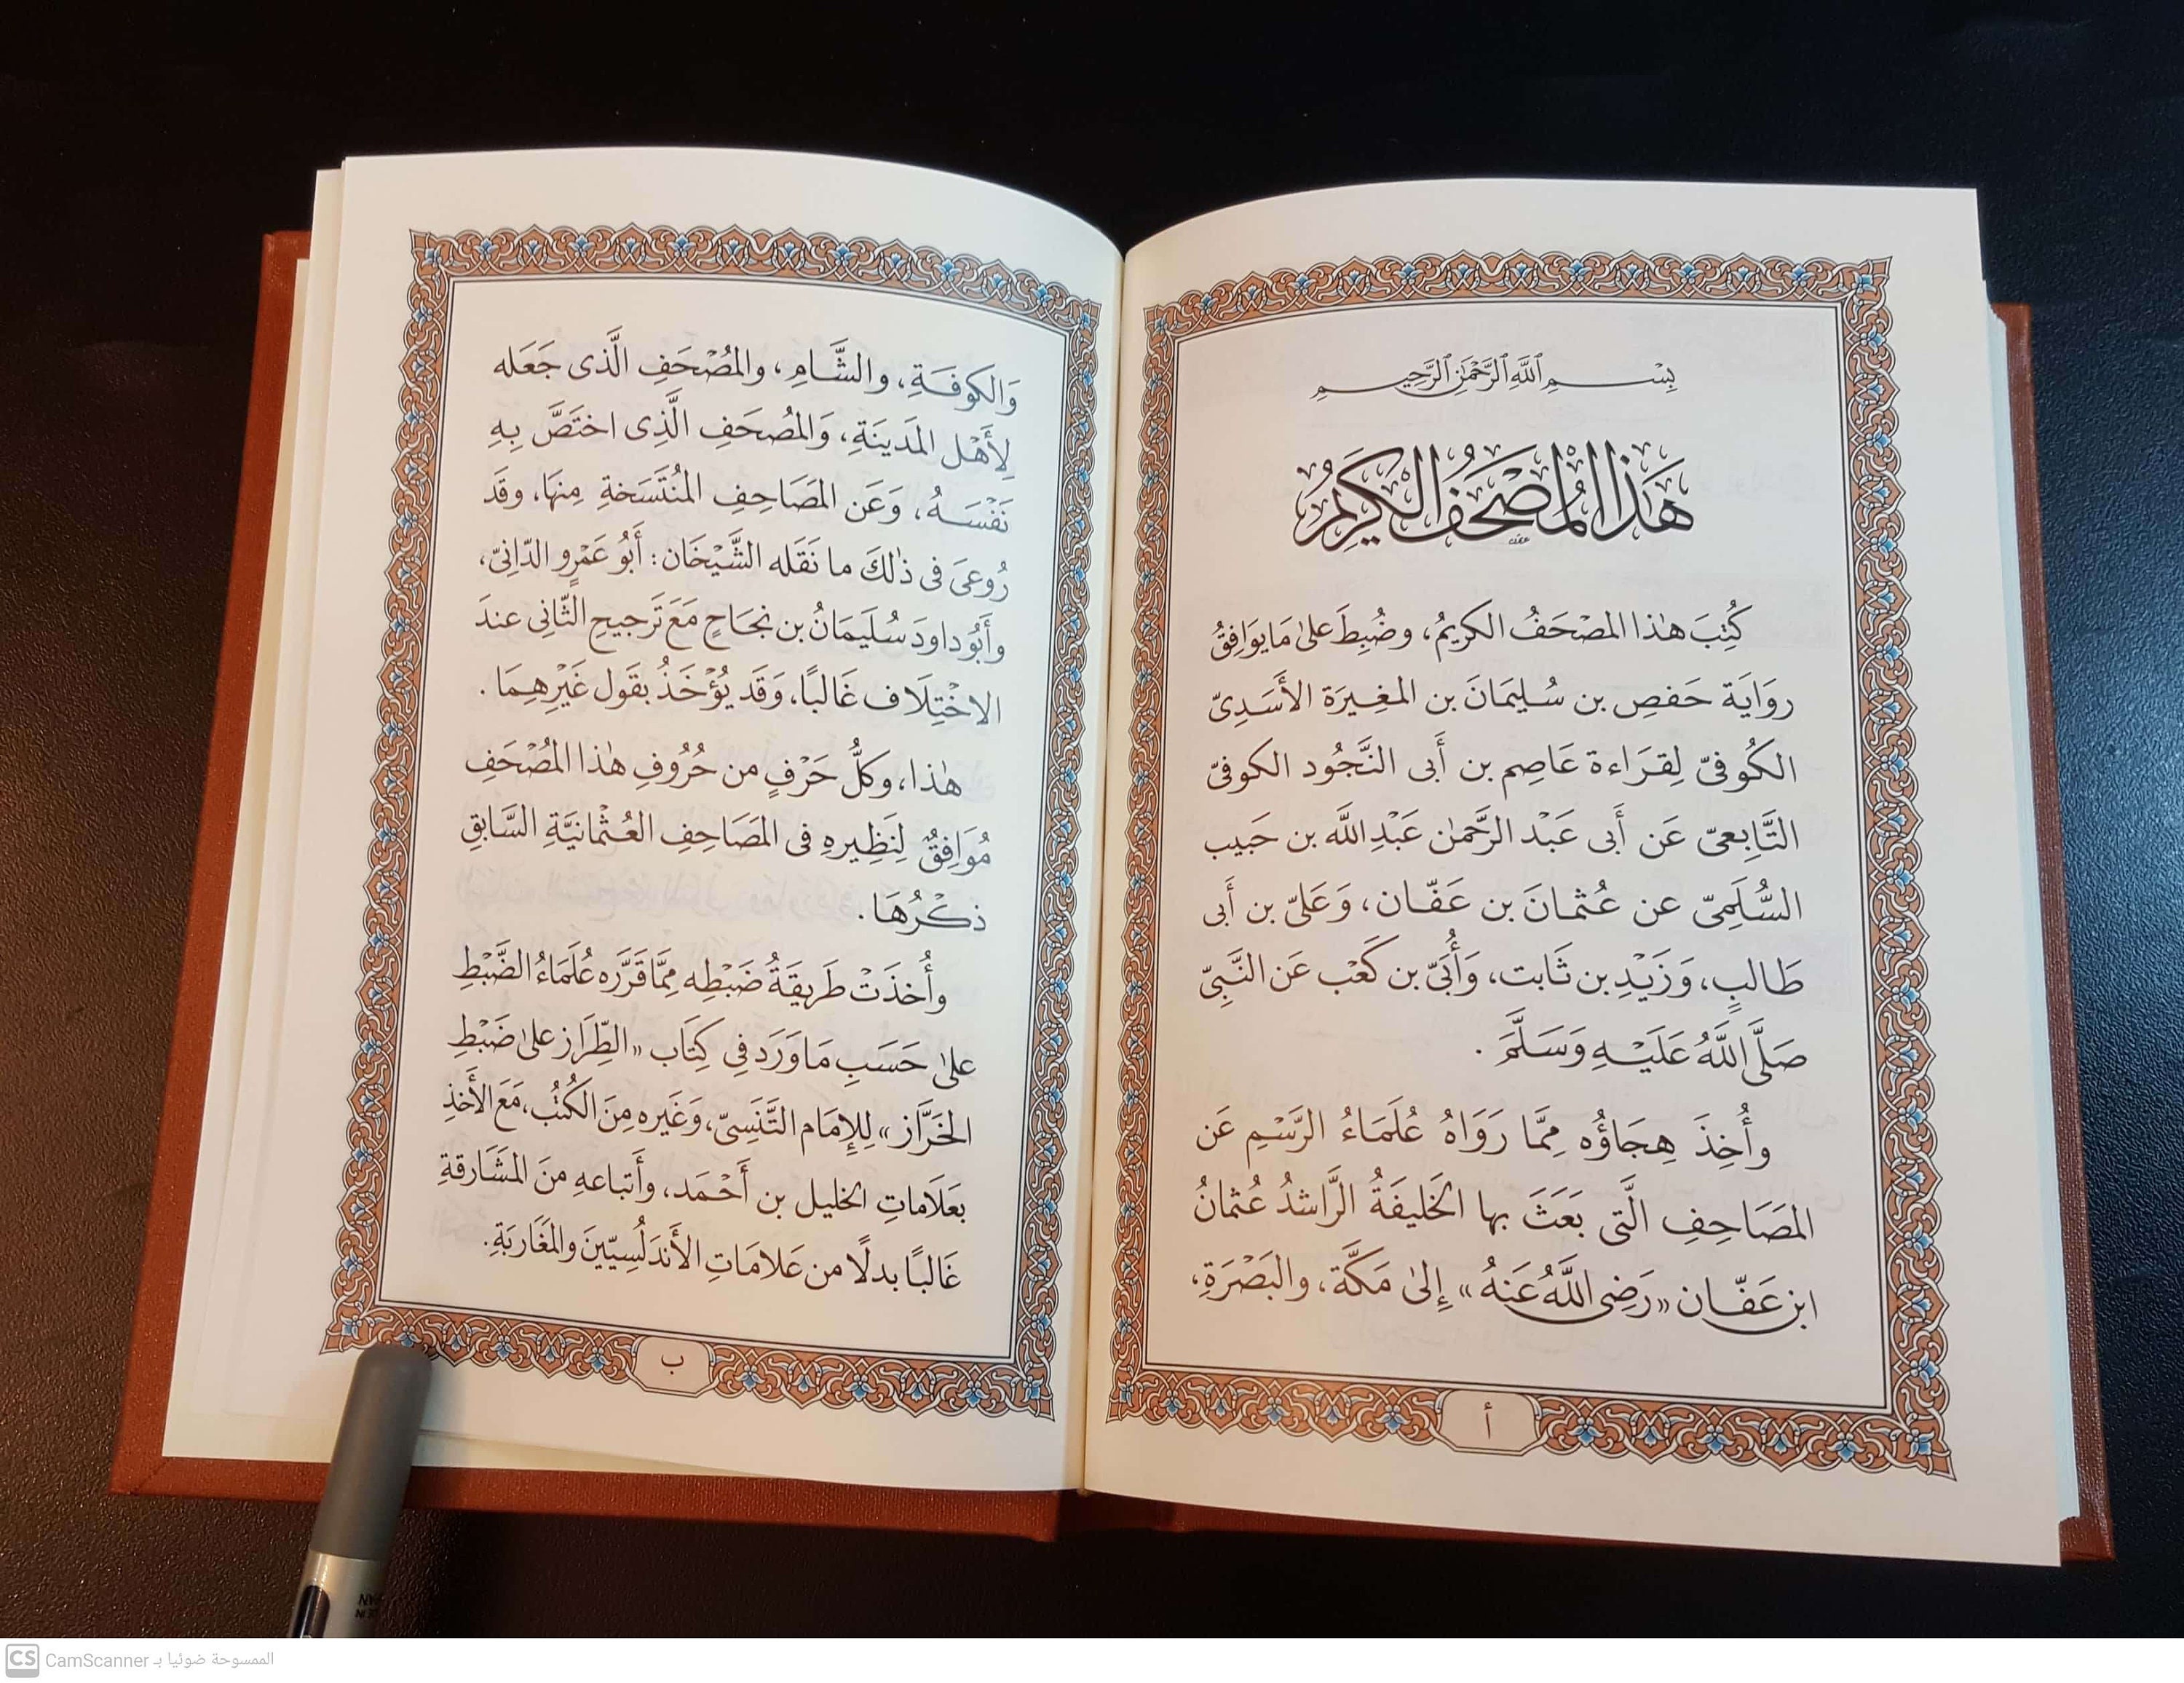 بِسْمِ ٱللَّهِ ٱلرَّحْمَٰنِ ٱلرَّحِيمِ
هَٰذَا الْمُصْحَفُ الْكَرِيمُ
كُتِبَ هٰذا المصْحَفُ الكريمُ، وضُبِطَ علىٰ مَا يوَافِقُ
روَايَة حَفصِ بن سُليمَانَ بن المغِيرَة الأَسَدِىّ
الكُوفىّ لِقرَاءة عَاصِم بن أَبى النَّجُود الكوفىّ
التَّابِعىّ عَن أَبى عَبْد الرَّحمٰن عَبْدِ اللَّه بن حَبيب
السُّلَمِىّ عن عُثمانَ بن عَفّان، وَعَلىّ بن أَبى
طَالبٍ، وَزَيْدِ بن ثَابت، وَأُبَىّ بن كَعْب عَن النَّبِىّ
صَلَّى اللَّهُ عَلَيْهِ وَسَلَّمَ .
وأُخِذَ هِجَاؤُه مِمَّا رَوَاهُ عُلَمَاءُ الرَّسْمِ عَن
المصَاحِفِ الَّتى بَعَثَ بها الخَليفَةُ الرَّاشدُ عُثمانُ
ابن عَفّان «رَضِى اللَّهُ عَنهُ» إِلىٰ مَكَّة، والبَصْرَةِ،
أ
وَالكوفَةِ، والشَّامِ، والمُصْحَفِ الَّذى جَعَله
لِأَهْل المَدينَةِ، وَالمُصْحَفِ الَّذِى اختَصَّ بِهِ
نَفْسَهُ، وَعَن المَصَاحِفِ المُنْتَسَخةِ مِنهَا، وقَد
رُوعىَ فى ذٰلكَ ما نَقَله الشَّيْخَان: أَبُو عَمْرٍو الدّانِىّ،
وأَبُو داودَ سُلَيمَانُ بن نجَاحٍ مَعَ تَرجيحِ الثّانِى عندَ
الاخْتِلَاف غَالبًا، وَقَد يُؤْخَذُ بقَول غَيْرِهِمَا .
هٰذا، وكلُّ حَرْفٍ من حُرُوفِ هٰذا المُصْحَفِ
مُوَافِقٌ لِنَظِيرِهِ فى المَصَاحِفِ العُثْمانيَّةِ السَّابِقِ
ذكْرُهَا .
وأُخذَتْ طَريقَةُ ضَبْطِه مِمَّا قَرَّره عُلمَاءُ الضَّبْطِ
علىٰ حَسَبِ مَا وَرَد فِى كِتَاب «الطِّرَاز علىٰ ضَبْطِ
الخَرَّاز» لِلإمَام التَّنَسِىّ، وَغَيره مِنَ الكُتُب، مَعَ الأَخذِ
بعَلَاماتِ الخليل بن أَحْمَد، وأَتباعهِ منَ المشَارقةِ
غَالبًا بدلًا من عَلامَاتِ الأَندَلُسِيّينَ والمَغَاربَةِ.
ب
CS CamScanner الممسوحة ضوئيا بـ